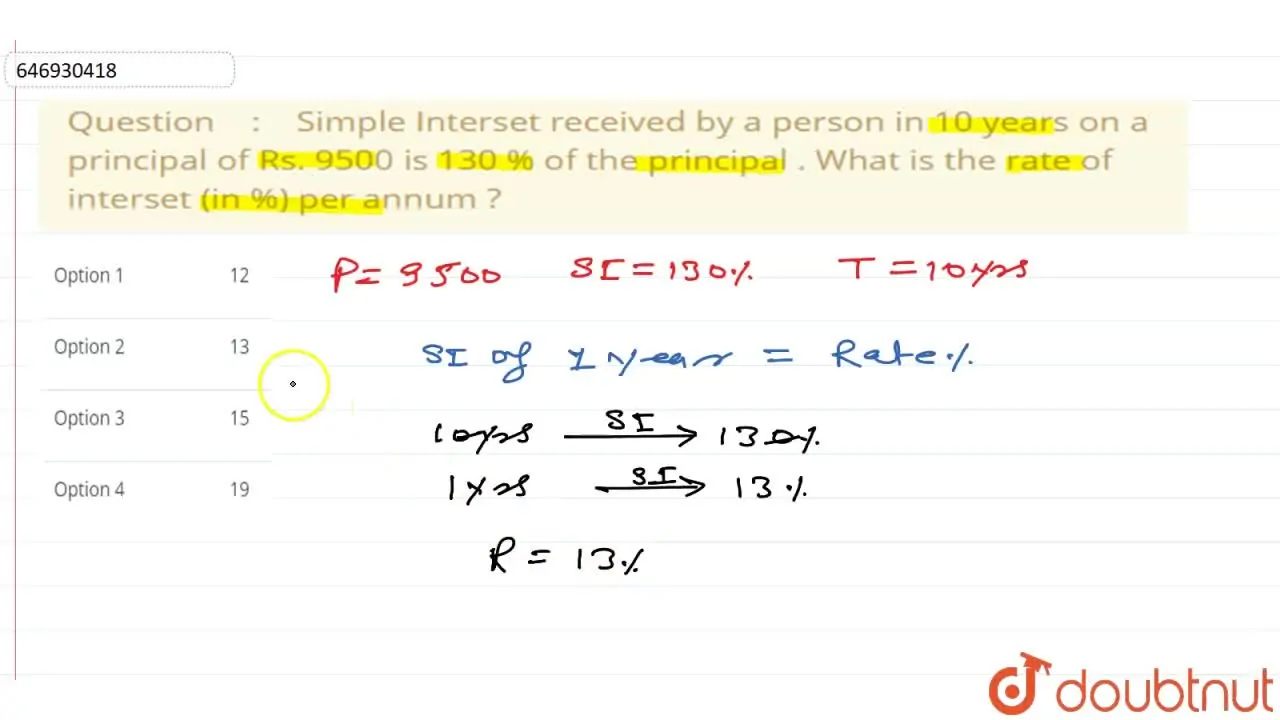 646930418
Question : Simple Interset received by a person in 10 years on a
principal of Rs. 9500 is 130 % of the principal . What is the rate of
interset (in %) per annum ?
Option 1 12
P = 9500 SI = 130% T = 10yrs
Option 2 13
SI of 1 year = Rate%
Option 3 15
10yrs SI → 130%
Option 4 19
1yrs SI → 13%
R = 13%
doubtnut